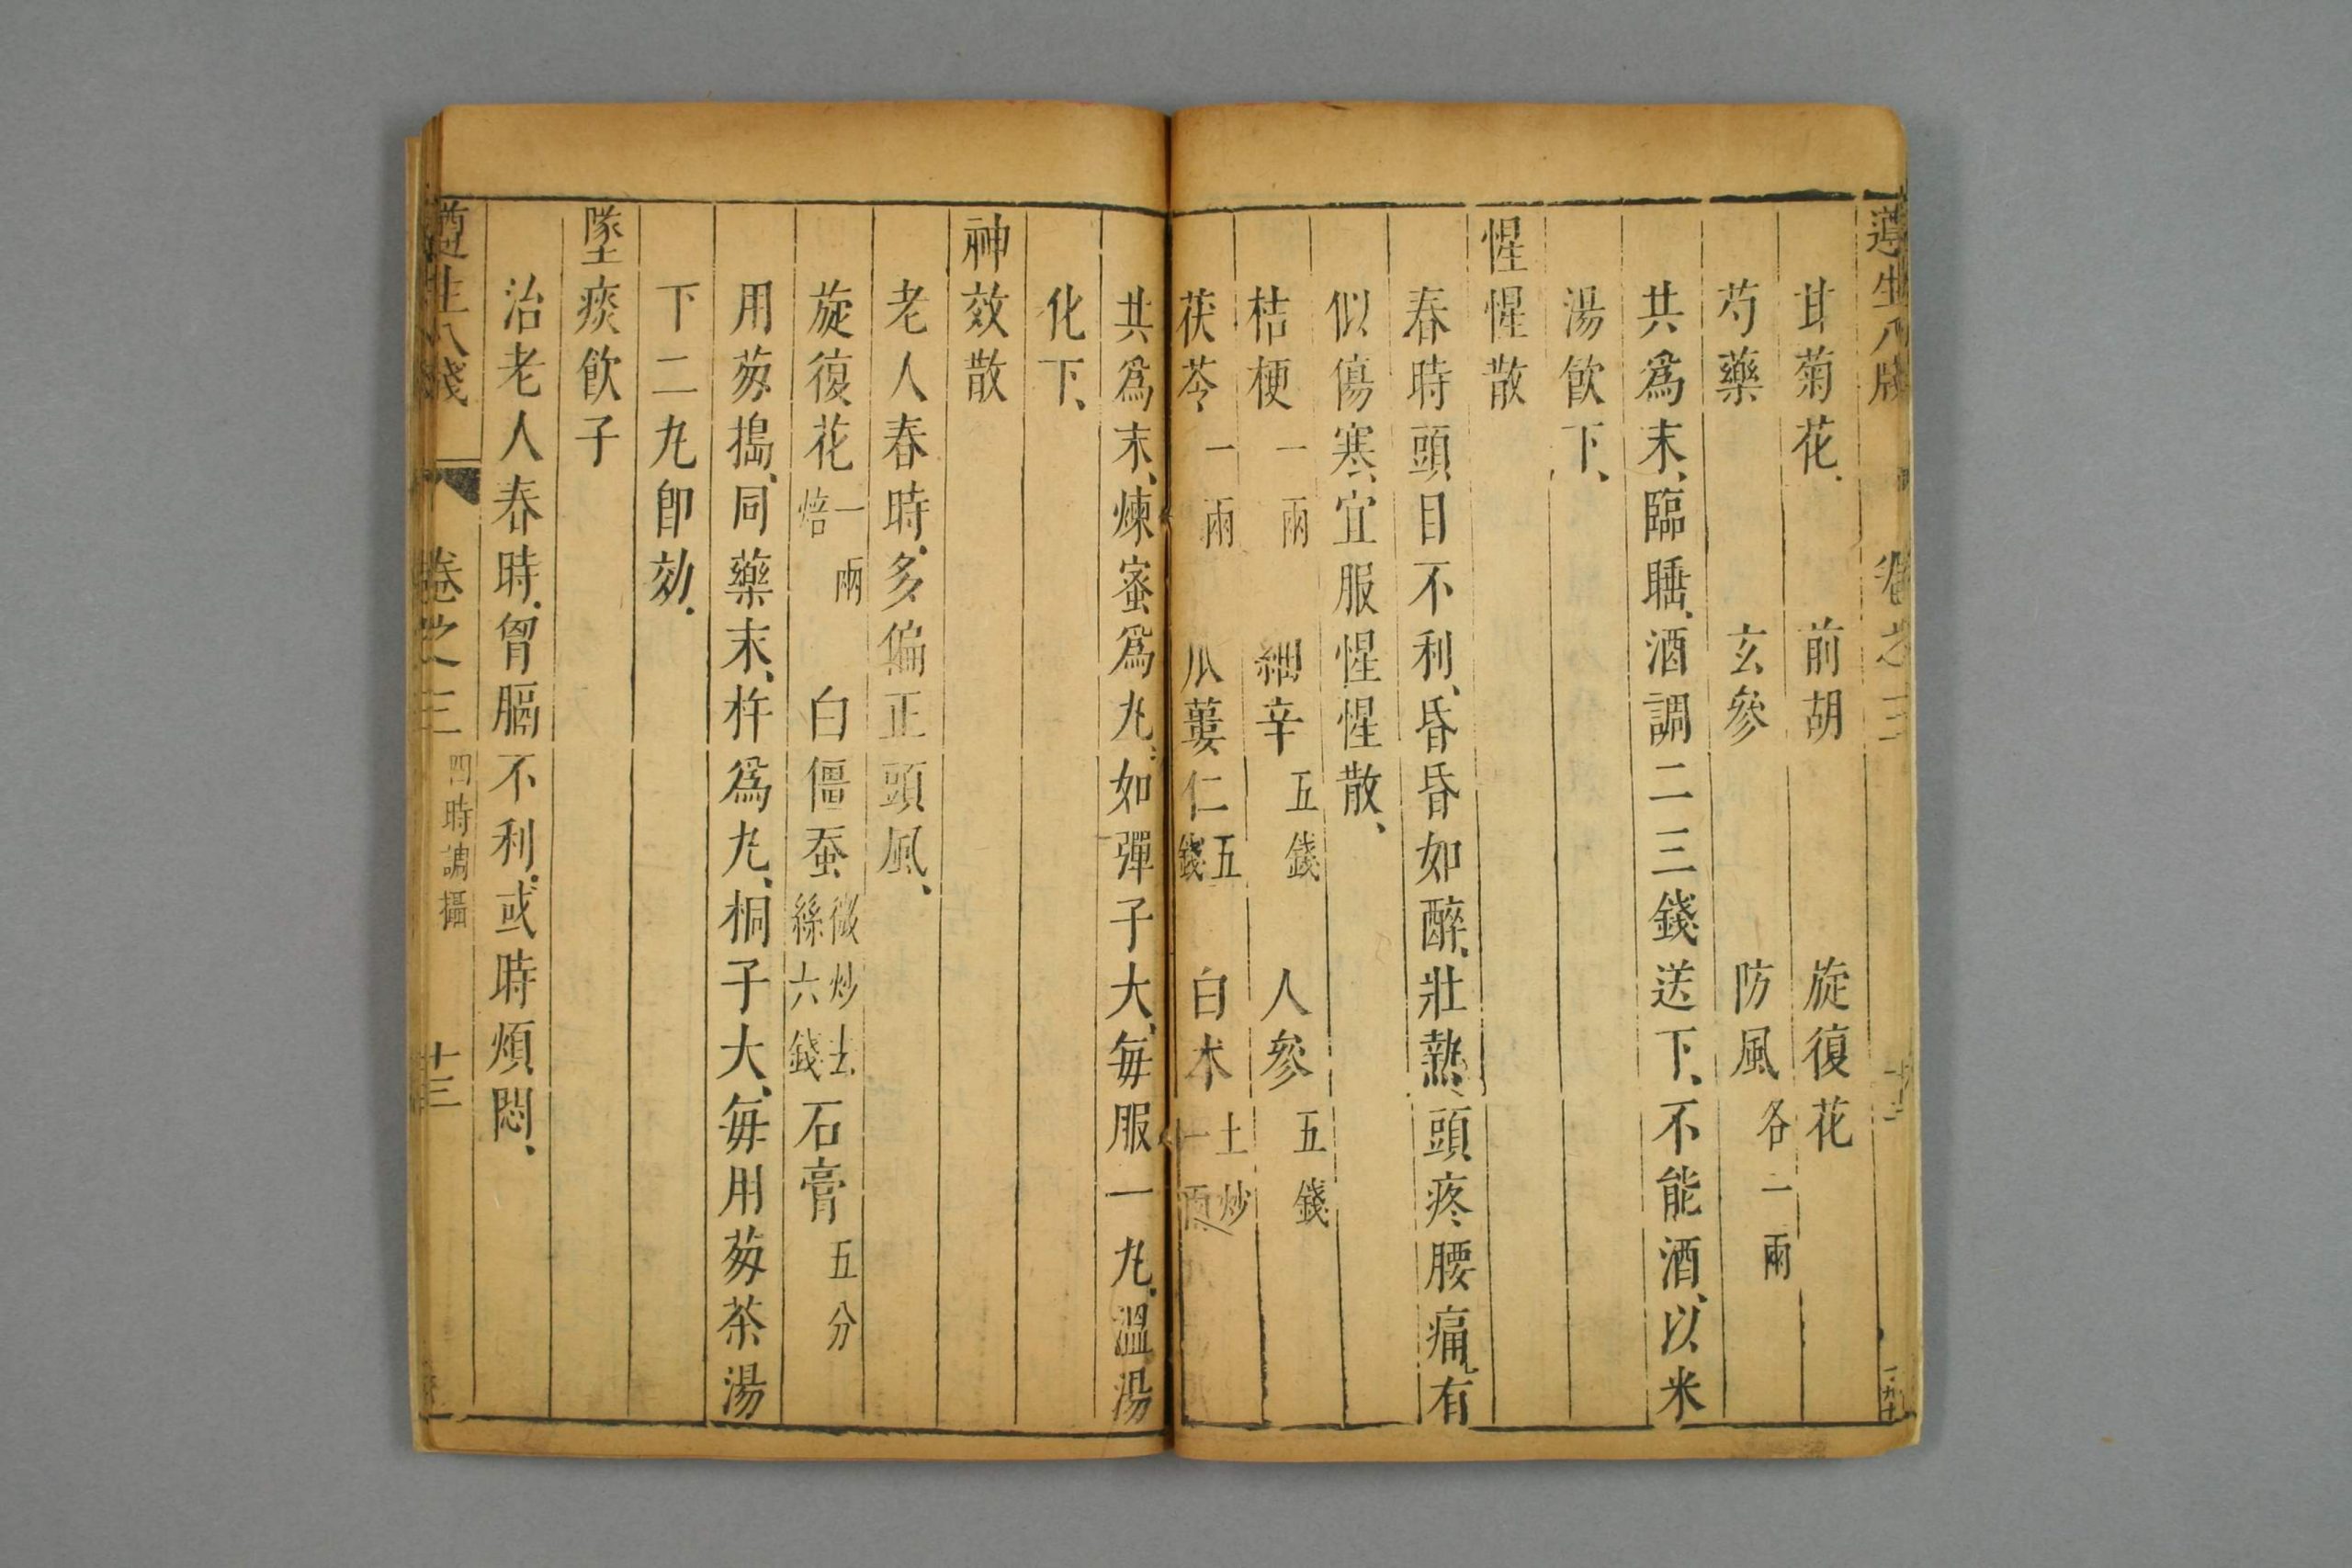 遵生八牋 卷之三
甘菊花 前胡 旋復花
芍藥 玄參 防風各二兩
共爲末、臨睡、酒調二三錢送下、不能酒、以米
湯飲下、
惺惺散
春時頭目不利、昏昏如醉、壯熱、頭疼腰痛、有
似傷寒、宜服惺惺散、
桔梗一兩 細辛五錢 人參五錢
茯苓一兩 瓜蔞仁五錢 白术土炒一兩
共爲末、煉蜜爲丸、如彈子大、每服一丸、溫湯
化下、
神效散
老人春時、多偏正頭風、
旋復花一兩焙 白僵蚕微炒去絲六錢 石膏五分
用葱搗、同藥末、杵爲丸、桐子大、每用葱茶湯
下二丸卽効、
墜痰飲子
治老人春時、胷膈不利、或時煩悶、
遵生八牋 卷之三 四時調攝 十三